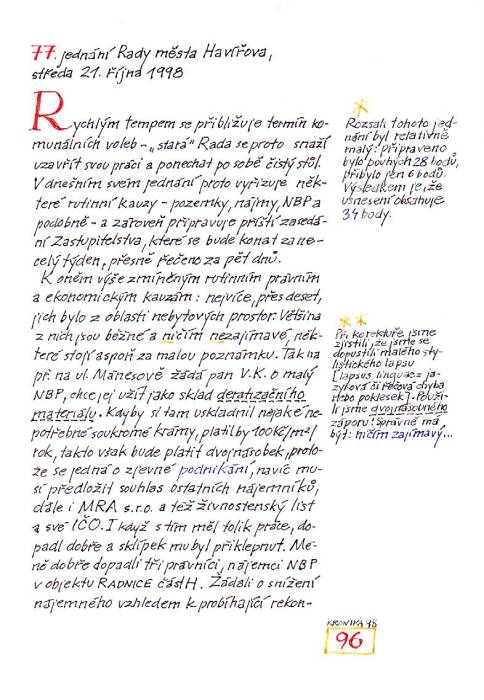 77. jednání Rady města Havířova,
středa 21. října 1998
Rychlým tempem se přibližuje termín ko-
munálních voleb - „stará" Rada se proto snaží
uzavřít svou práci a ponechat po sobě čistý stůl.
V dnešním svém jednání proto vyřizuje něk-
teré rutinní kauzy - pozemky, nájmy, NBP a
podobně - a zároveň připravuje příští zasedá-
ní Zastupitelstva, které se bude konat za ne-
celý týden, přesně řečeno za pět dnů.
K oněm výše zmíněným rutinním právním
a ekonomickým kauzám: nejvíce, přes deset,
jich bylo z oblasti nebytových prostor. Většina
z nich jsou běžné a ničím nezajímavé, něk-
teré stojí aspoň za malou poznámku. Tak na
př. na ul. Mánesově žádá pan V. K. o malý
NBP, chce jej užít jako sklad deratizačního
materiálu. Kdyby si tam uskladnil nejaké ne-
potřebné soukromé krámy, platil by 100 Kč/m²/
rok, takto však bude platit dvojnásobek, proto-
že se jedná o zjevné podnikání, navíc mu-
sí předložit souhlas ostatních nájemníků,
dále i MRA s.r.o. a též živnostenský list
a své IČO. I když s tím měl tolik práce, do-
padl dobře a sklípek mu byl přiklepnut. Mé-
ně dobře dopadli tři právníci, nájemci NBP
v objektu RADNICE část H. Žádali o snížení
nájemného vzhledem k probíhající rekon-
*
Rozsah tohoto jed-
nání byl relativně
malý: připraveno
bylo pouhých 28 bodů,
přibylo jen 6 bodů.
Výsledkem je, že
usnesení obsahuje
34 body.
**
Při korektuře jsme
zjistili, že jsme se
dopustili malého sty-
listického lapsu
[lapsus linguae = ja-
zyková či řečová chyba
nebo poklesek]. Použi-
li jsme dvojnásobného
záporu! Správně má
být: ničím zajímavý...
KRONIKA 98
96